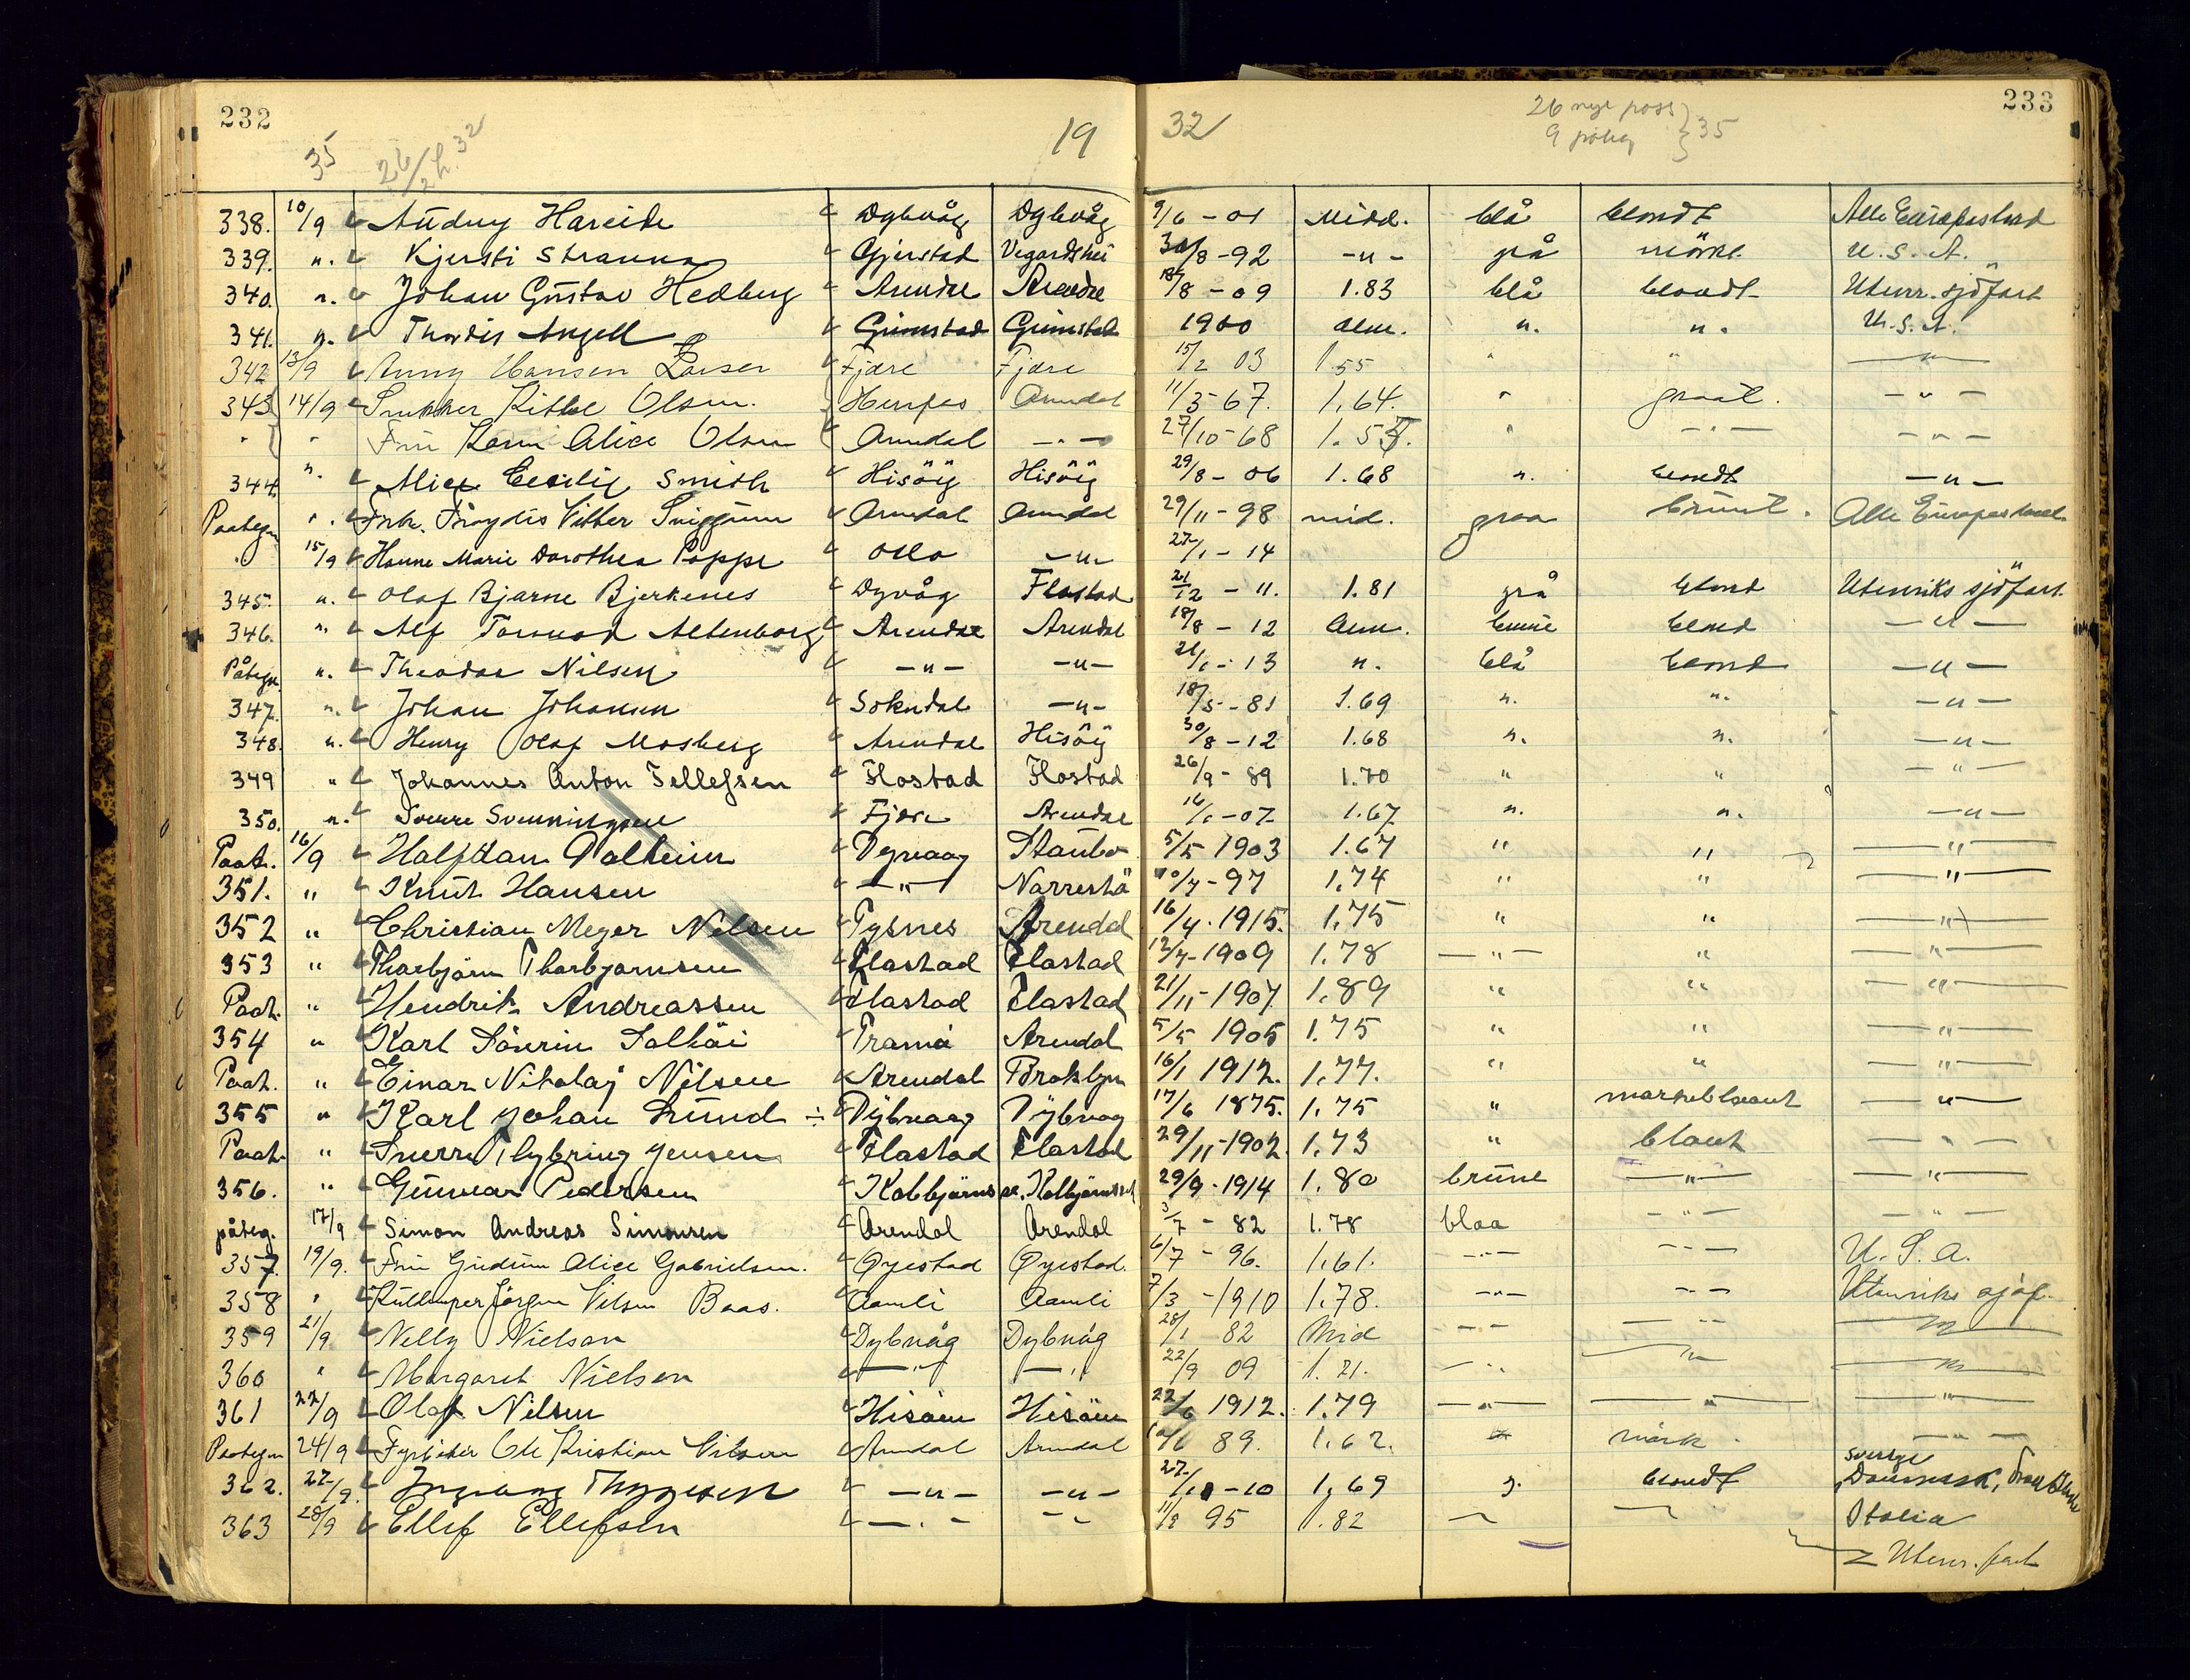 232
233
35
26/2 32
19 32
26 nye pass
9 påteg } 35
338. 10/9 Audny Hareide Dybvåg Dybvåg 9/6 - 01 Midd. blå blondt Alle Europas land
339. " Kjersti Stranna Gjerstad Vegardshei 30/8 - 92 - " - grå mörkt. U.S.A.
340. " Johan Gustav Hedberg Arendal Arendal 18/8 - 09 1.83 blå blondt Utenr. sjöfart
341. " Thordis Angell Grimstad Grimstad 1900 alm. " " U.S.A.
342 13/9 Anny Hansen Larsen Fjære Fjære 15/2 03 1.55 " " — " —
343 14/9 Snekker Kittel Olsen. Arendal 11/3 - 67. 1.64. " graat. - " -
" " Fru Karen Alice Olsen Arendal - " - 27/10 - 68 1.5 " - " - - " -
344. " Alice Cecilie Smith Hisöy Hisöy 29/8 - 06 1.68 " blondt - " -
Paategn " Frk. Frøydis Vibber Arendal Arendal 29/11 - 98 mid. graa brunt. Alle Europas land
" 15/9 Hanne Marie Dorothea Poppe Oslo - " - 27/1 - 14
345. " Olaf Bjarne Bjerkenes Dyvåg Flostad 21/12 - 11. 1.81 grå blond Utenriks sjöfart
346. " Alf Tormod Altenborg Arendal Arendal 18/8 - 12 Alm. brune blond - " -
Påtegn. " Theodor Nilsen - " - - " - 21/1 - 13 " blå blond - " -
347. " Johan Johansen Sokndal - " - 18/5 - 81 1.69 " " - " -
348. " Henry Olaf Mosberg Arendal Hisöy 30/8 - 12 1.68 " " - " -
349 " Johannes Anton Tellefsen Flostad Flostad 26/9 - 89 1.70 " " - " -
350. " Sverre Svenningsen Fjære Arendal 16/1 - 07 1.67 " " - " -
Paat. 16/9 Halfdan Dalheim Dypvaag Staubo 5/5 1903 1.67 " " — " —
351. " Knut Hansen — " — Narrestø 10/7 - 97 1.74 " " — " —
352 " Christian Meyer Nilsen Tysnes Arendal 16/4. 1915. 1.75 " " — " —
353 " Thorbjørn Thorbjørnsen Flastad Flastad 12/7 - 1909 1.78 — " — " — " —
Paat. " Hendrik Andreassen Flastad Flastad 21/11 - 1907 1.89 " " — " —
354 " Karl Sörin Solhöi Tromö Arendal 5/5 1905 1.75 " " — " —
Paat. " Einar Nikolaj Nilsen Arendal Broklyn 16/1 1912. 1.77. " " — " —
355 " Karl Johan Lund ÷ Dybvaag Dybvag 17/6 1875. 1.75 " mørkeblaant — " —
Paat. " Sverre Thybring Jensen Flastad Flastad 29/11 - 1902 1.73 " blont — " —
356. " Gunvar Pedersen Kolbjørns Kolbjørnsvik 29/9. 1914 1.80 brune — " — — " —
påteg. 17/9 Simon Andreas Simonsen Arendal Arendal 3/7 - 82 1.78 blaa - " - - " -
357. 19/9. Fru Gudrun Alice Gabrielsen. Øyestad Øyestad. 6/7 - 96. 1.61. - " - - " - U.S.A.
358 " Jörgen Nilsen Baas. Aamli Aamli 7/3 - 1910 1.78. - " - - " - Utenriks sjøf.
359 21/9 Nelly Nielsen Dybvåg Dybvåg 28/1 82 Mid - " - - " - — " —
360 " Margaret Nielsen — " — — " 22/9 09 1.21. - " - — " — — " —
361 22/9 Olaf Nilsen Hisöen Hisöen 22/6 1912. 1.79 — " — — " — — " —
Paategn 24/9 Fyrbøter Ole Kristian Nilsen Arendal Arendal 10/6 89. 1.62. " mørk. - " -
362. 27/9. Ingvang Thygesen - " - - " - 27/10 - 10 1.69 " blondt Sverige Danmark, Frankrike
363 28/9 Ellef Ellefsen — " — - " - 11/8 95 1.82 Italia
Utenr. fart